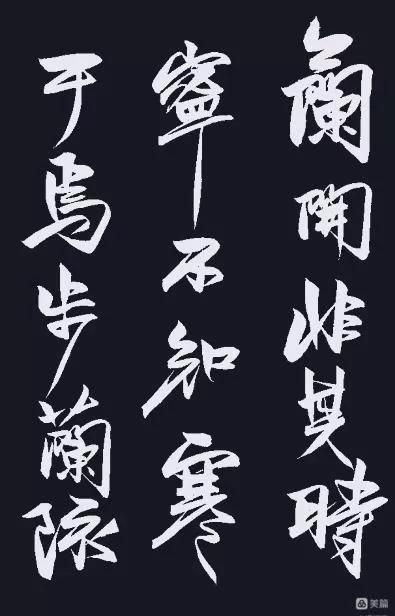 蘭開非其時
寧不知寒
于焉步蘭陔
美篇